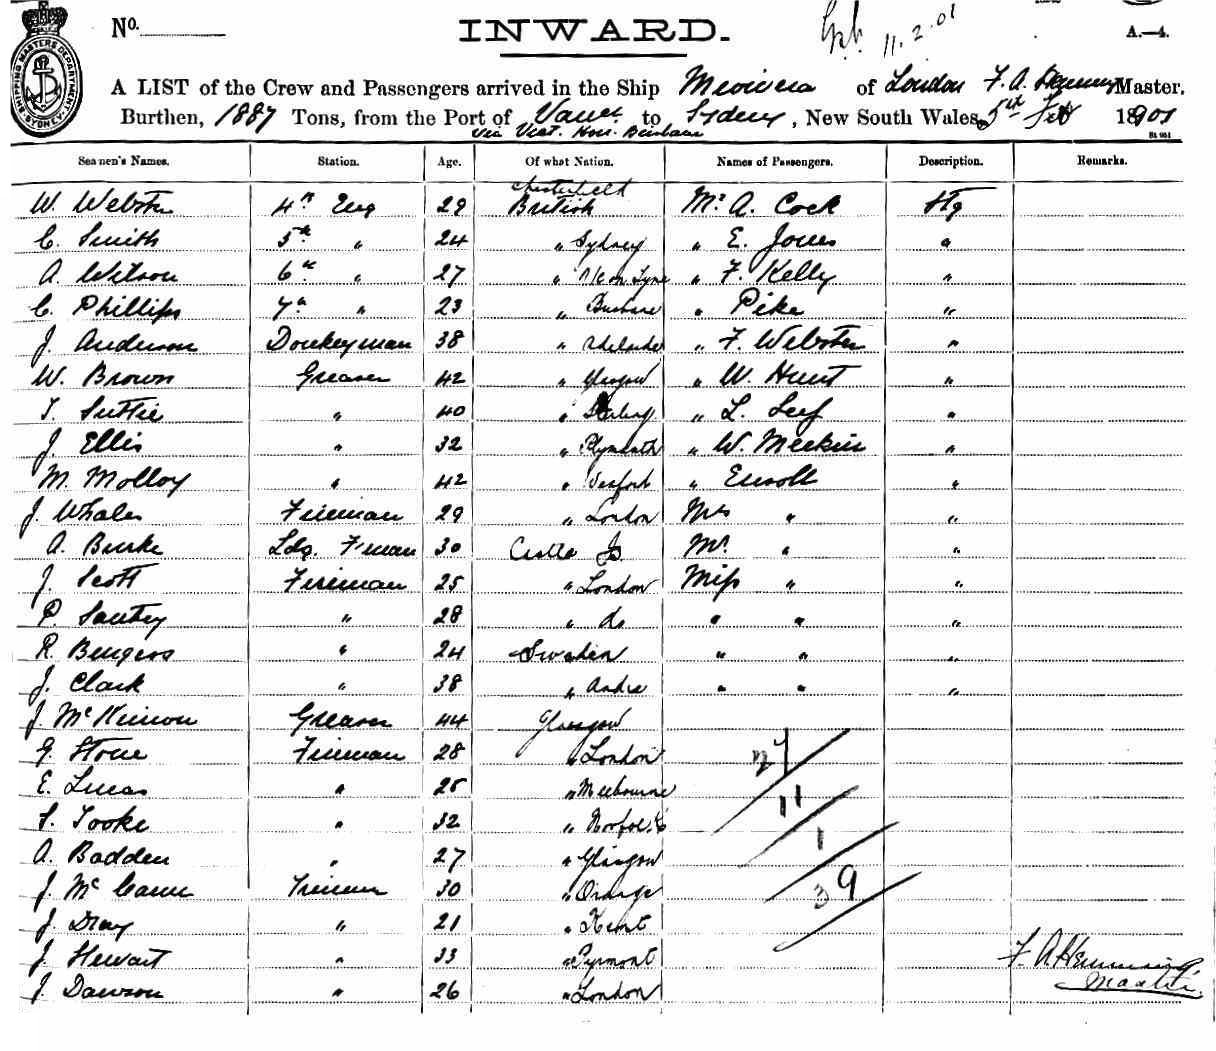 No.
INWARD.
11.2.01
A.—4.
SHIPPING MASTERS DEPARTMENT SYDNEY
A LIST of the Crew and Passengers arrived in the Ship Miowera of London F. A. Hemming Master.
Burthen, 1887 Tons, from the Port of Vancr to Sydney, New South Wales, 5th Feb 1901
via Vict. Hon. Brisbane
Seamen's Names. Station. Age. Of what Nation. Names of Passengers. Description. Remarks.
Chesterfield
W. Webster 4th Eng 29 British Mr A. Cock Stg
C. Smith 5th " 24 " Sydney " E. Jones "
A. Wilson 6th " 27 " N/C on Tyne " F. Kelly "
C. Phillips 7th " 23 " Brisbane " Pike "
J. Anderson Donkeyman 38 " Adelaide " F. Webster "
W. Brown Greaser 42 " Glasgow " W. Hunt "
T. Suttie " 40 " Stirling " L. Leef "
J. Ellis " 32 " Plymouth " W. Meekin "
M. Molloy " 42 " Wexford " "
J. Whales Fireman 29 " London Mrs " "
A. Burke Ldg. F'man 30 Mr. " "
J. Scott Fireman 25 " London Miss " "
P. " 28 " do " " "
R. " 24 Sweden " " "
J. Clark " 38 " " " "
J. McKinnon Greaser 44 Glasgow
G. Stone Fireman 28 " London
27
E. Lucas " 25 " Melbourne
11
S. Tooke " 32 " Norfolk
1
A. Badden " 27 " Glasgow
J. McCann Trimmer 30 " Orange
39
J. Dray " 21 " Kent
J. Stewart " 33 " Pyrmont
F. A. Hemming
J. Dawson " 26 " London
Master.